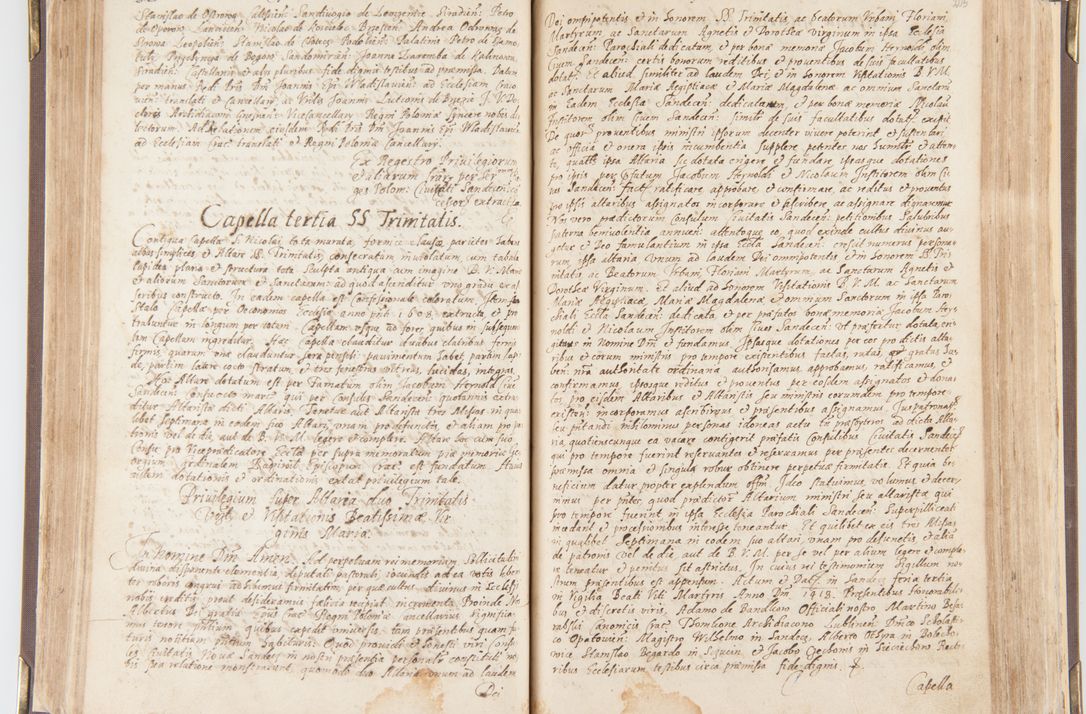 Stanislao de Ostrorog Calissien: Sandivogio de Lezenice Siradien: Petro
de Oporow Lancicien: Nicolao de Brestien: Andrea Odrowąs de
Leopolien: Stanislao de Chotecz Podolien: Palatinis Petro de Samo
Sandomirien: Joanne Zaremba de Kalinowa
Siradien: Castellanis et alijs pluribus fide dignis testibus ad præmissa. Datum
per manus Rndi Pris Dni Joannis Epi Wladislavien: ad Ecclesiam Craco
vien: translati et Cancellarij, ac Vriti Joannis Lutconis de Brzezie J. V. Do
ctoris Archidiaconi Gnesnen: Vicecancellarij Regni Poloniæ syncere nobis di
lectorum. Ad relationem eiusdem Rndi Pris Dni Joannis Epi Wladislavien
ad Ecclesiam Crac: translati et Regni Poloniæ Cancellarij.
Ex Regestro Privilegiorum
et aliarum
Polon: Civitati Sandecen:
extractis.
Capella tertia SS Trinitatis.
Contigua Capellæ S. Nicolai tota murata, fornice clausa, parietes habens
albos simplices, et Altare SS. Trinitatis consecratum inviolatum, cum tabula
lapidea plana et structura tota sculpta antiqua cum imagine B. V. Mariæ
et aliorum Sanctorum et Sanctarum: ad quod ascenditur uno gradu ex as
seribus constructo. In eadem capella est Confessionale coloratum, Item
Stalo Capellæ per Oeconomos Ecclesiæ anno pnti 1608 extructa, et pro
trahuntur in longum per totam Capellam usque ad fores quibus in subsequen
tem Capellam ingreditur. Hæc Capella clauditur duabus clatribus ferreis
firmis, quarum una clauduntur sera pensili: pavimentum habet partim lapi
de, partim latere cocto stratum, et tres fenestras vitreas, lucidas, integras.
Hoc Altare dotatum est per Famatum olim Jacobum Hernold Civem
Sandecen: Censu octo marc: qui per Consules Sandecen: quotannis extra
ditur Altaristæ dicti Altaris. Tenetur aut Altarista tres Missas in qua
libet septimana in eodem suo Altari, unam pro defunctis, et aliam pro pa
tronis vel de die, aut de B. V. M. legere et complere. Altare hoc cum suo
Censu pro Vicepredicatore Ecclæ per supra memoratum piæ memoriæ Ge
orgium Cardinalem Radzivil Episcopum Crac: est fundatum. Huius
autem dotationis et ordinationis extat privilegium tale.
Privilegium super Altaria duo Trinitatis
et Visitationis Beatissimæ Vir
ginis Mariæ.
In Nomine Dni Amen. Ad perpetuam rei memoriam. Sollicitudini
divina disponente clementia, deputati pastorali, iocundis ad ea votis liben
ter roboris congrui adhibemus firmitatem, per quæ cultus divinus in Ecclesijs
nobis creditis, prout desideramus, felicia recipiat incrementa. Proinde Nos
Albertus Dei gratia Epus Crac: Regni Poloniæ Cancellarius significa
mus tenore pntium quibus expedit universis, tam præsentibus quam fu
turis notitiam pntium habituris: Quod providi et honesti viri Consu
les Civitatis Novæ Sandecz in nostri præsentia personaliter constituti no
bis sua relatione monstrarunt, quomodo duo Altaria unum ad laudem
Dei
Dei omnipotentis et in honorem SS. Trinitatis, ac beatorum Urbani, Floriani,
Martyrum, ac Sanctarum Agnetis et Dorotheæ Virginum in ipsa Ecclesia
Sandecen: Parochiali dedicatum, et per bonæ memoriæ Jacobum Hernolde olim
Civem Sandecen: certis bonorum reditibus et proventibus de suis facultatibus
dotat: Et aliud similiter ad laudem Dei, et in honorem Visitationis B. V. M.
ac Sanctarum Mariæ Ægiptiacæ et Mariæ Magdalenæ ac omnium Sanctorum
in eadem Ecclesia Sandecen: dedicatum, et per bonæ memoriæ Nicolaum
Institorem olim Civem Sandecen: simili de suis facultatibus dotat: erexit
De quor: proventibus ministri ipsorum decenter vivere poterint, et sustentari
ac officia et onera ipsis incumbentia supplere petentes nos humilr et attente
te, quatts ipsa Altaria sic dotata erigere et fundare ipsasque dotationes
pro ipsis per ipsum Jacobum Hernoldi et Nicolaum Institorem olim Ci
ves Sandecen: fact: ratificare approbare et confirmare, ac reditus et proventus
pro ipsis altaribus assignatos incorporare et adscribere, ac assignare dignaremur
Nos vero prædictorum Consulum Civitatis Sandecen: petitionibus salubribus
paterna benivolentia annuen: attentoque eo, quod exinde cultus divinus au
getur et Deo famulantium in ipsa Eccla Sandecen: crescit numerus persona
rum, ipsa altaria unum ad laudem Dei omnipotentis et in honorem SS Tri
nitatis ac Beatorum Urbani Floriani Martyrum, ac Sanctarum Agnetis et
Dorotheæ Virginum. Et aliud ad honorem Visitationis B. V. M. ac Sanctarum
Mariæ Ægyptiacæ, Mariæ Magdalenæ et omnium Sanctorum in ipsa Paro
chiali Eccla Sandecen: dedicata, et per præfatos bonæ memoriæ Jacobum Her
noldi et Nicolaum Institorem olim Cives Sandecen: ut præfertur dotata, eri
gimus in Nomine Dni et fundamus. Ipsasque dotationes per eos prædictis alta
ribus et eorum ministris pro tempore existentibus factas, ratas, et gratas ha
ben: nra authoritate ordinaria authorisamus, approbamus, ratificamus, et
confirmamus, ipsosque reditus et proventus per eosdem assignatos et dona
tos pro eisdem Altaribus et Altaristis seu ministris eorundem pro tempore
existen: incorporamus ascribimus et præsentibus assignamus. Jus patronatus
seu pntandi nihilominus personas idoneas actu tn præsbyteros ad dicta Alta
ria quotiescunque ea vacare contigerit præfatis Consulibus Civitatis Sandecen:
qui pro tempore fuerint reservantes et reservamus per præsentes decernentes
præmissa omnia et singula robur obtinere perpetuæ firmitatis. Et quia be
neficium datur propter explendum offm, Idco statuimus, volumus, et decer
nimus per pntes quod prædictor: Altarium ministri seu altaristæ qui
pro tempore fuerint in ipsa Ecclesia Parochiali Sandecen: superpelliceati
incedant et processionibus interesse teneantur. Et quilibet ex eis tres Missas
in qualibet septimana in eodem suo altari, unam pro defunctis, et alia
de patronis vel de die, aut de B. V. M. per se vel per alium legere et comple
re teneatur et penitus sit astrictus. In cuius rei testimonium sigillum no
strum præsentibus est appensum. Actum et Dat: in Sandecz feria tertia
in Vigilia Beati Viti Martyris Anno Dni 1418. Præsentibus Honorabili
bus et discretis viris, Adamo de Bandkow Officiali nostro Martino
Canonicis Crac: Thomkone Archidiacono Lublinen: Dnico Scholasti
co Opatovien: Magistro Wilhelmo in Sandecz, Alberto in
Stanislao Begardo in et Jacobo in Recto
ribus Ecclesiarum, testibus circa præmissa fide dignis.
Capella